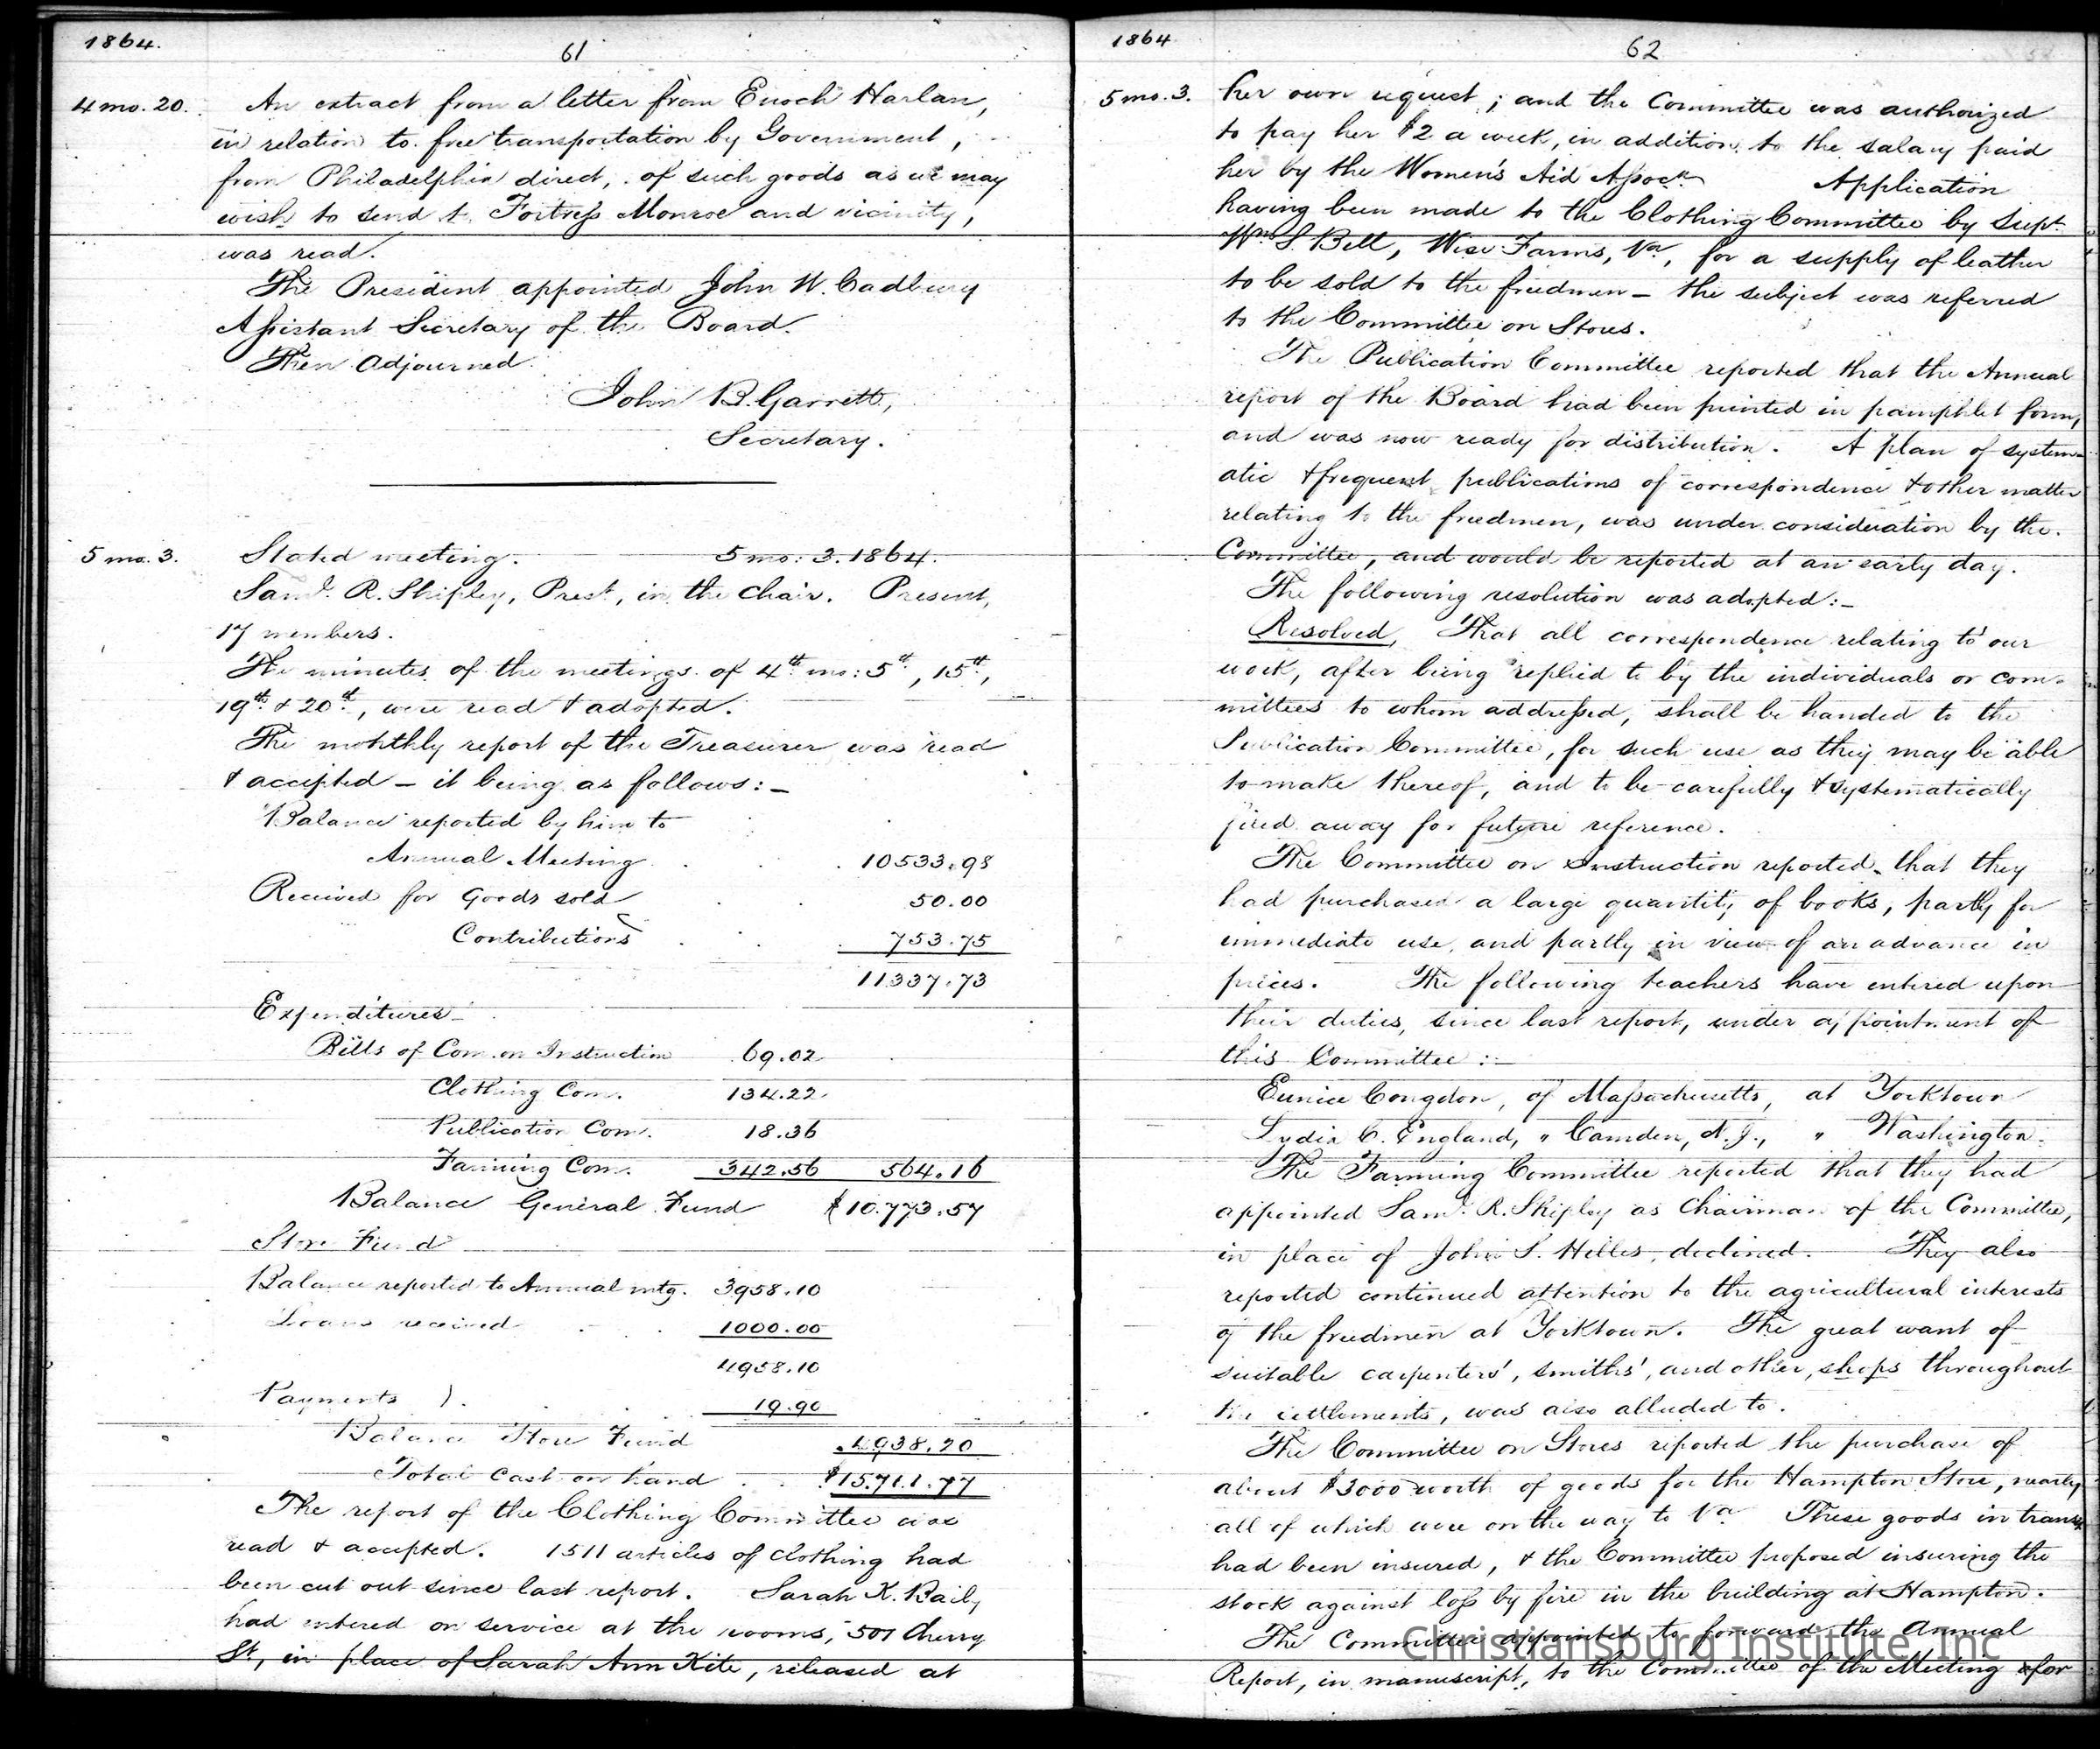 1864.
61
4 mo. 20. An extract from a letter from Enoch Harlan,
in relation to free transportation by Government,
from Philadelphia direct, of such goods as we may
wish to send to Fortress Monroe and vicinity,
was read.
The President appointed John W. Cadbury
Assistant Secretary of the Board.
Then adjourned.
John B. Garrett,
Secretary.
5 mo. 3. Stated meeting. 5 mo: 3. 1864.
Saml. R. Shipley, Prest., in the chair. Present,
17 members.
The minutes of the meetings of 4th mo: 5th, 15th,
19th & 20th, were read & adopted.
The monthly report of the Treasurer was read
& accepted – it being as follows: –
Balance reported by him to
Annual Meeting . . . 10533.98
Received for Goods sold . . 50.00
Contributions . . . 753.75
11337.73
Expenditures
Bills of Com. on Instruction 69.02
Clothing Com. 134.22
Publication Com. 18.36
Farming Com. 342.56 564.16
Balance General Fund $10.773.57
Store Fund
Balance reported to Annual mtg. 3958.10
Loans received . . 1000.00
4958.10
Payments . . . 19.90
Balance Store Fund 4938.20
Total Cash on hand . . $15.711.77
The report of the Clothing Committee was
read & accepted. 1511 articles of clothing had
been cut out since last report. Sarah K. Baily
had entered on service at the rooms, 501 Cherry
St, in place of Sarah Ann Kite, released at
1864
62
5 mo. 3. her own request; and the Committee was authorized
to pay her $2 a week, in addition to the salary paid
her by the Women's Aid Assocn. Application
having been made to the Clothing Committee by Supt
Wm S Bell, Wise Farms, Va, for a supply of leather
to be sold to the freedmen – the subject was referred
to the Committee on Stores.
The Publication Committee reported that the Annual
report of the Board had been printed in pamphlet form,
and was now ready for distribution. A plan of system-
atic & frequent publications of correspondence & other matter
relating to the freedmen, was under consideration by the
Committee, and would be reported at an early day.
The following resolution was adopted: –
Resolved, That all correspondence relating to our
work, after being replied to by the individuals or com-
mittees to whom addressed, shall be handed to the
Publication Committee, for such use as they may be able
to make thereof, and to be carefully & systematically
filed away for future reference.
The Committee on Instruction reported that they
had purchased a large quantity of books, partly for
immediate use, and partly in view of an advance in
prices. The following teachers have entered upon
their duties, since last report, under appointment of
this Committee: –
Eunice Congdon, of Massachusetts, at Yorktown
Lydia C. England, " Camden, N.J., " Washington.
The Farming Committee reported that they had
appointed Saml. R. Shipley as Chairman of the Committee,
in place of John S. Hilles, declined. They also
reported continued attention to the agricultural interests
of the freedmen at Yorktown. The great want of
suitable carpenters', smiths', and other, shops throughout
the settlements, was also alluded to.
The Committee on Stores reported the purchase of
about $3000 worth of goods for the Hampton Store, nearly
all of which were on the way to Va These goods in transit
had been insured, & the Committee proposed insuring the
stock against loss by fire in the building at Hampton.
The Committee appointed to forward the Annual
Report, in manuscript, to the Committee of the Meeting for
Christiansburg Institute, Inc